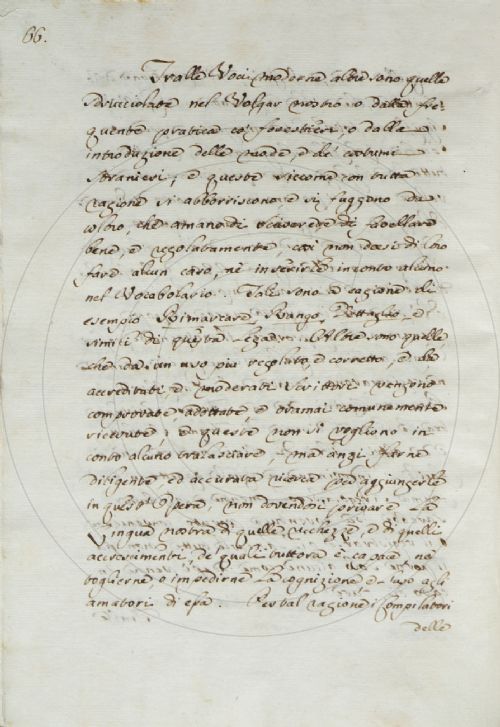 66.
Tralle Voci moderne altre sono quelle
sdrucciolate nel Volgar nostro o dalla fre-
quente pratica co' forestieri, o dalla
introduzione delle mode, e de' costumi
stranieri; e queste siccome con tutta
ragione si abborriscono e si fuggono da
coloro, che amano di scrivere e di favellare
bene, e regolatamente, così non dèesi di loro
fare alcun caso, nè inserirle in conto alcuno
nel Vocabolario. Tali sono a cagione di
esempio Rimarcare, Rango, Dettaglio, e
simili di questa Altre sono quelle
che da un uso più regolato, e corretto, e da
accreditati, e moderati Scrittori vengono
comprovate, adottate, e oramai comunemente
ricevute, e queste non si vogliono in
conto alcuno tralasciare, ma anzi farne
diligente, ed accurata ricerca per aggiungerle
in quest'Opera, non dovendosi privare la
Lingua nostra di quelle ricchezze, e di quelli
accrescimenti, de' quali tuttora è capace, nè
toglierne o impedirne la cognizione e l'uso agli
amatori di essa. Per tal ragione i Compilatori
delle